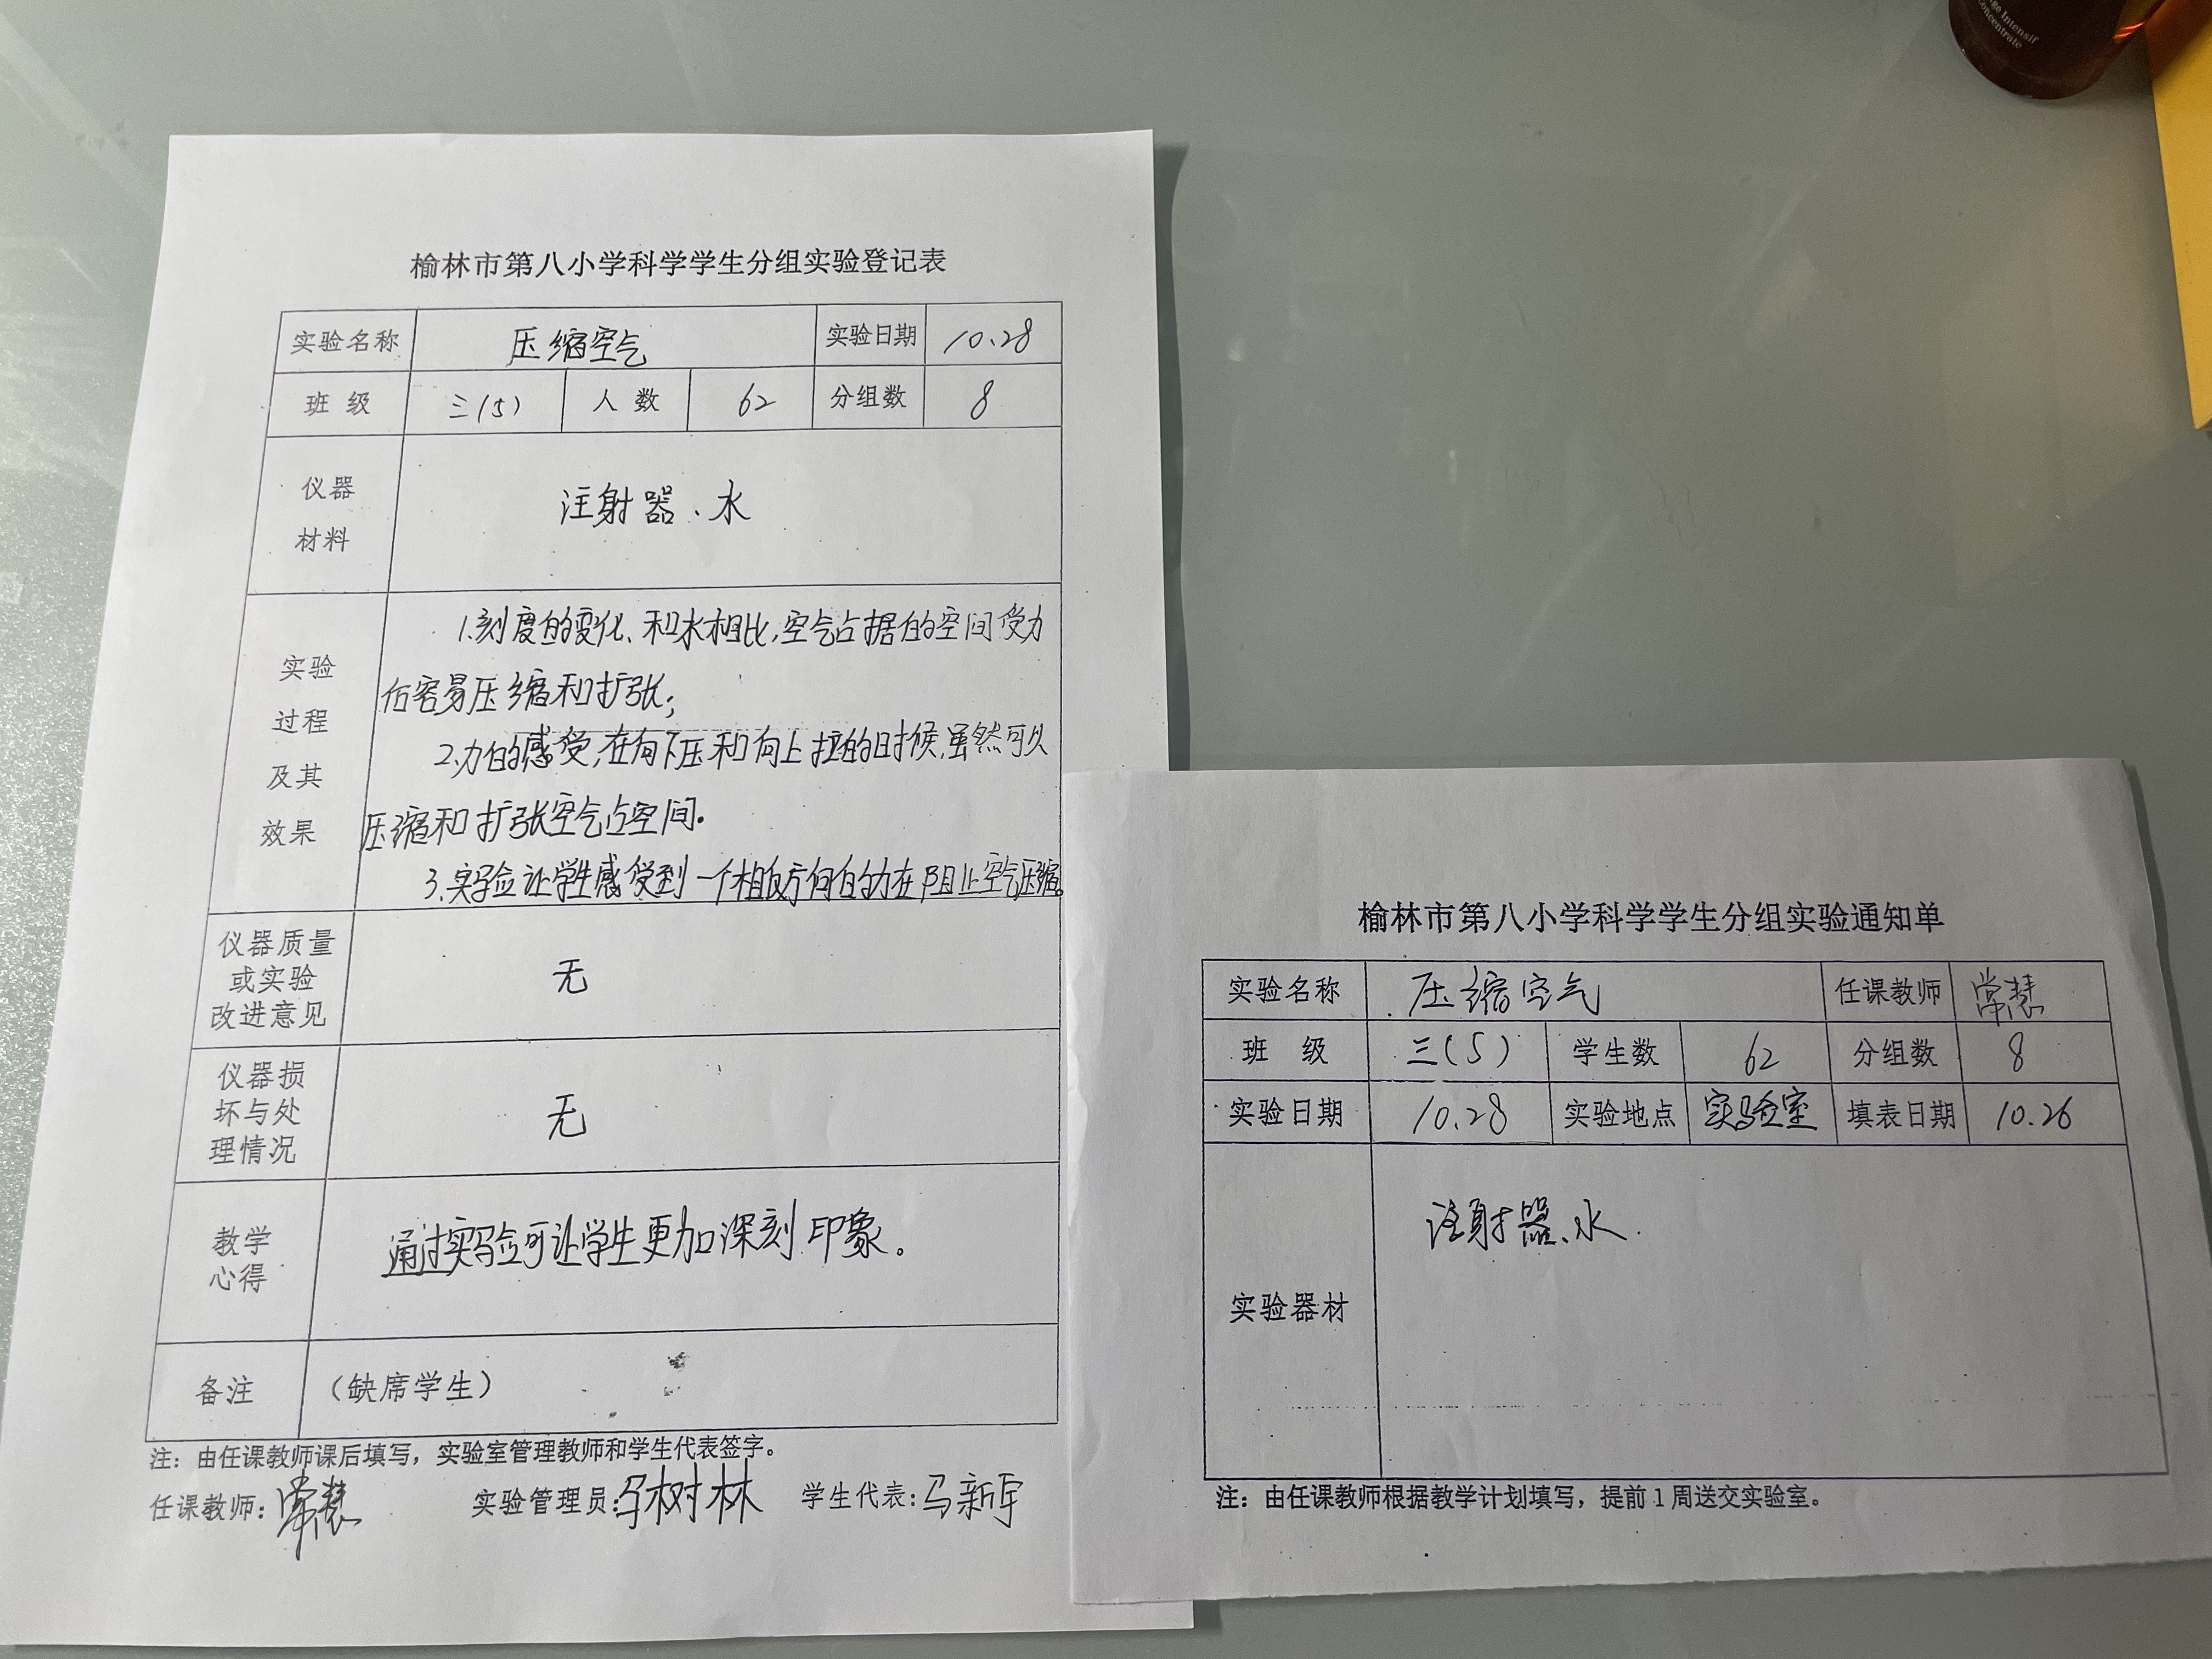 ge Intensif
Concentrate
榆林市第八小学科学学生分组实验登记表
实验名称 压缩空气 实验日期 10.28
班 级 三(5) 人 数 62 分组数 8
仪器
材料
注射器、水
实验
过程
及其
效果
1.刻度的变化、和水相比,空气占据的空间受力
后容易压缩和扩张;
2.力的感受,在向下压和向上拉的时候,虽然可以
压缩和扩张空气占空间。
3.实验让学生感受到一个相反方向的力在阻止空气压缩。
仪器质量
或实验
改进意见
无
仪器损
坏与处
理情况
无
教学
心得
通过实验可让学生更加深刻印象。
备注 (缺席学生)
注:由任课教师课后填写,实验室管理教师和学生代表签字。
任课教师:常慧 实验管理员: 树林 学生代表:马新宇
榆林市第八小学科学学生分组实验通知单
实验名称 压缩空气 任课教师 常慧
班 级 三(5) 学生数 62 分组数 8
实验日期 10.28 实验地点 实验室 填表日期 10.26
实验器材
注射器、水.
注:由任课教师根据教学计划填写,提前1周送交实验室。